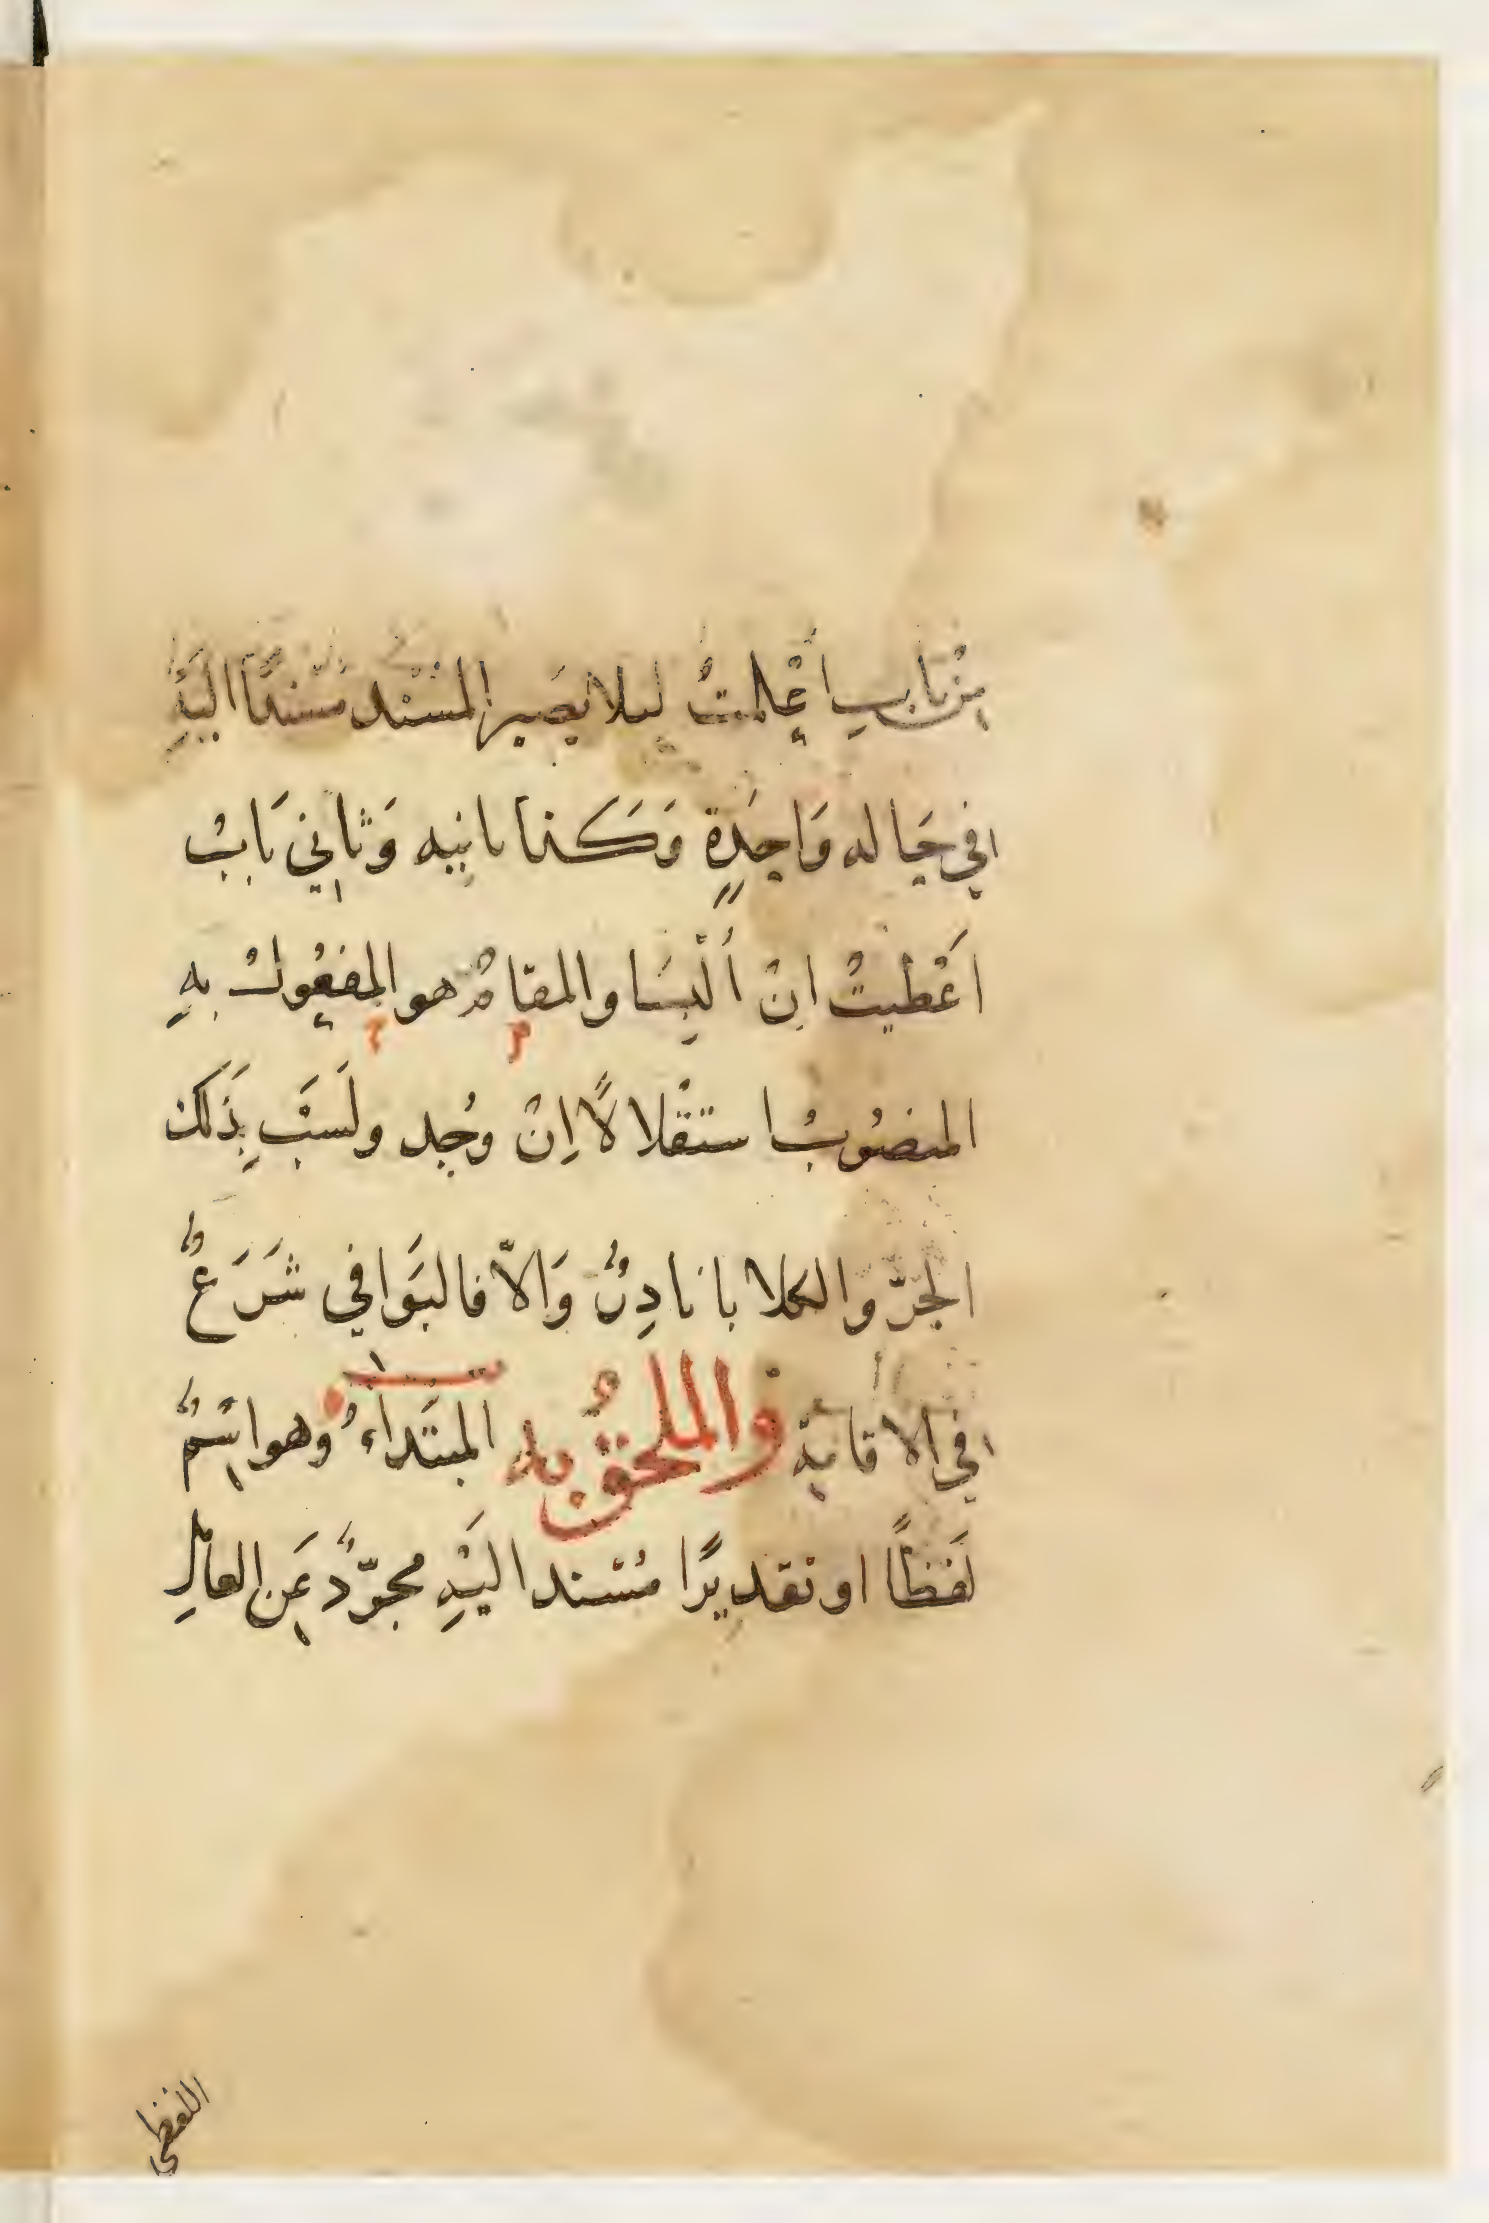 مِنْ بَابِ اَعْلمتُ ليلا يَصير المسْنْد مسْندًا اليَهِ
في حَاله وَاحِدَةٍ وَكَذا ثانيه وَثاني بَابُ
اَعْطيتُ انْ اُلْبِسَا والمقامُ هو المفعُولُ بهِ
المنصُوبُ استقْلالًا اِنْ وُجِد ولَسَبَّ بِذَلَكَ
الجرّ والكلابا نادِرٌ وَالاّ فالبَوَاقي شَرَعٌ
في الاقامة والملحقُ به المبتَداءُ وهو اسْمٌ
لَفظًا او تقديرًا مسْندا اليَهِ مجرّدٌ عَن العاملِ
اللفظي